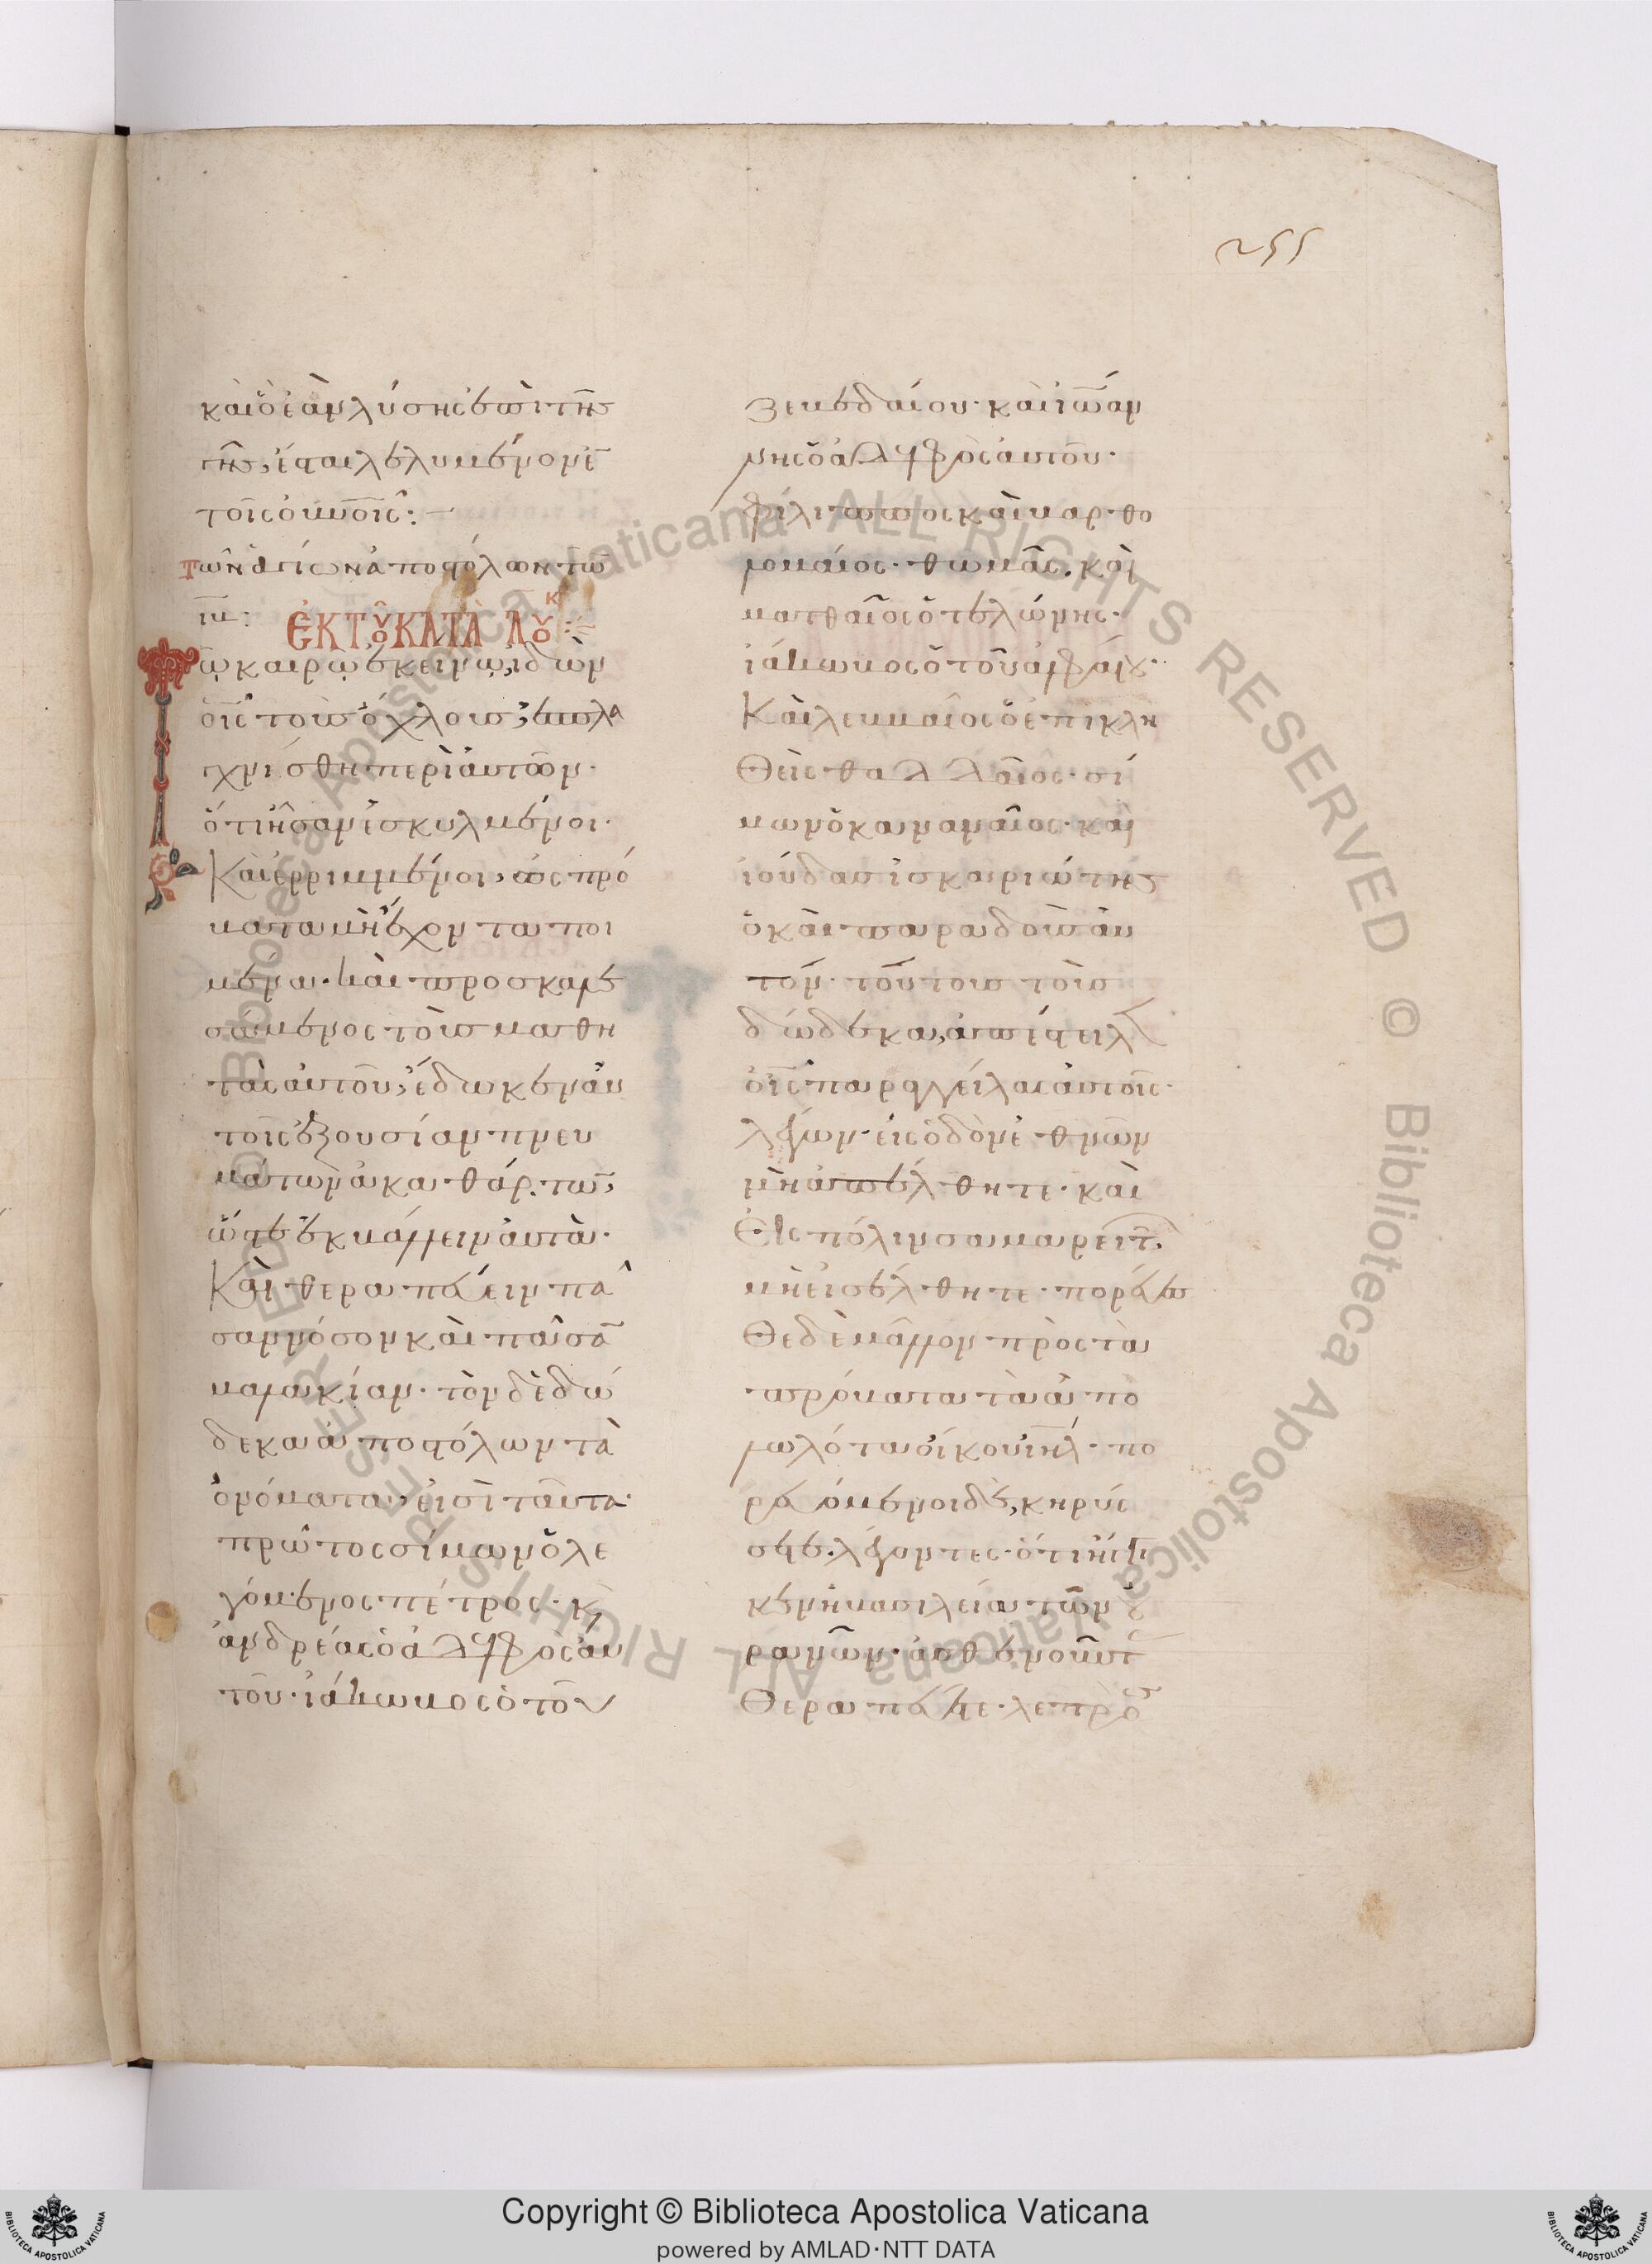 255
καὶ ὃ ἐὰν λύσης ἐπὶ τῆς
γῆς, ἔσται λελυμένον ἐ̅
τοῖς οὐνοῖς:
Τῶν ἁγίων ἀποστόλων τῶ̅
ιβ:
ἘΚ ΤΟΥ͂ ΚΑΤᾺ ΛΟΥΚ
Τῷ καιρῷ ἐκείνῳ, ἰδὼν
ὁ ι̅ς̅ τοὺς ὄχλους, ἐσπλα
γχνίσθη περὶ αὐτῶν·
ὅτι ἦσαν ἐσκυλμένοι·
Καὶ ἐρριμμένοι, ὡς πρό
βατα μὴ ἔχοντα ποι
μένα· καὶ προσκαλε
σάμενος τοὺς μαθη
τὰς αὐτοῦ, ἔδωκεν αὐ
τοῖς ἐξουσίαν πνευ
μάτων ἀκαθάρτων,
ὥστε ἐκβάλλειν αὐτὰ·
Καὶ θεραπεύειν πᾶ
σαν νόσον καὶ πᾶσα̅
μαλακίαν· τῶν δὲ δώ
δεκα ἀποστόλων τὰ
ὀνόματα, εἰσὶ ταῦτα·
πρῶτος σίμων ὁ λε
γόμενος πέτρος· κ̀
ἀνδρέας ὁ ἀδελφὸς αὐ
τοῦ· ἰάκωβος ὁ τοῦ
Ζεβεδαίου· καὶ ἰωάν
νης ὁ ἀδελφὸς αὐτοῦ·
φίλιππος καὶ βαρθο
λομαῖος· θωμᾶς· καὶ
ματθαῖος ὁ τελώνης·
ἰάκωβος ὁ τοῦ ἀλφαίου·
Καὶ λεββαῖος ὁ ἐπικλη
Θεὶς θαδδαῖος· σί
μων ὁ καναναῖος· καὶ
ἰούδας ἰσκαριώτης
ὁ καὶ παραδοὺς αὐ
τόν· τούτους τοὺς
δώδεκα, ἀπέστειλεν
ὁ ι̅ς̅ παραγγείλας αὐτοῖς·
λέγων· εἰς ὁδὸν ἐθνῶν
μὴ ἀπέλθητε· καὶ
Εἰς πόλιν σαμαρειτῶν,
μὴ εἰσέλθητε· πορεύεσ
Θε δὲ μᾶλλον πρὸς τὰ
πρόβατα τὰ ἀπο
λωλότα οἴκου ι̅η̅λ̅· πο
ρευόμενοι δὲ, κηρύς
σετε, λέγοντες· ὅτι ἤγγι
κεν ἡ βασιλεία τῶν οὐ
ρανῶν· ἀσθενοῦντ̅
Θεραπεύετε· λεπροὺς
Copyright © Biblioteca Apostolica Vaticana
powered by AMLAD·NTT DATA